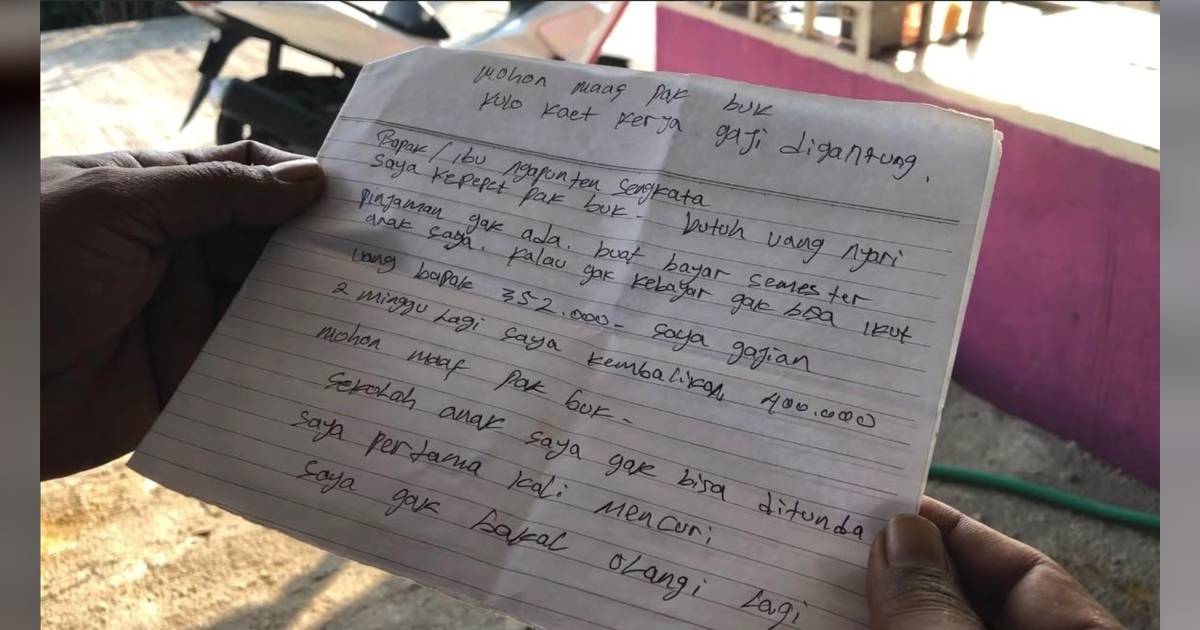 Mohon maaf pak buk
Kulo kaet kerja gaji digantung.
Bapak/ibu ngapunten sengkata
saya kepepet pak buk - butuh uang nyari
pinjaman gak ada. buat bayar semester
anak saya. kalau gak kebayar gak bisa ikut
uang bapak 352.000- saya gajian
2 minggu lagi saya kembalikan 400.000
mohon maaf pak buk-
sekolah anak saya gak bisa ditunda
saya pertama kali mencuri
saya gak bakal olangi lagi